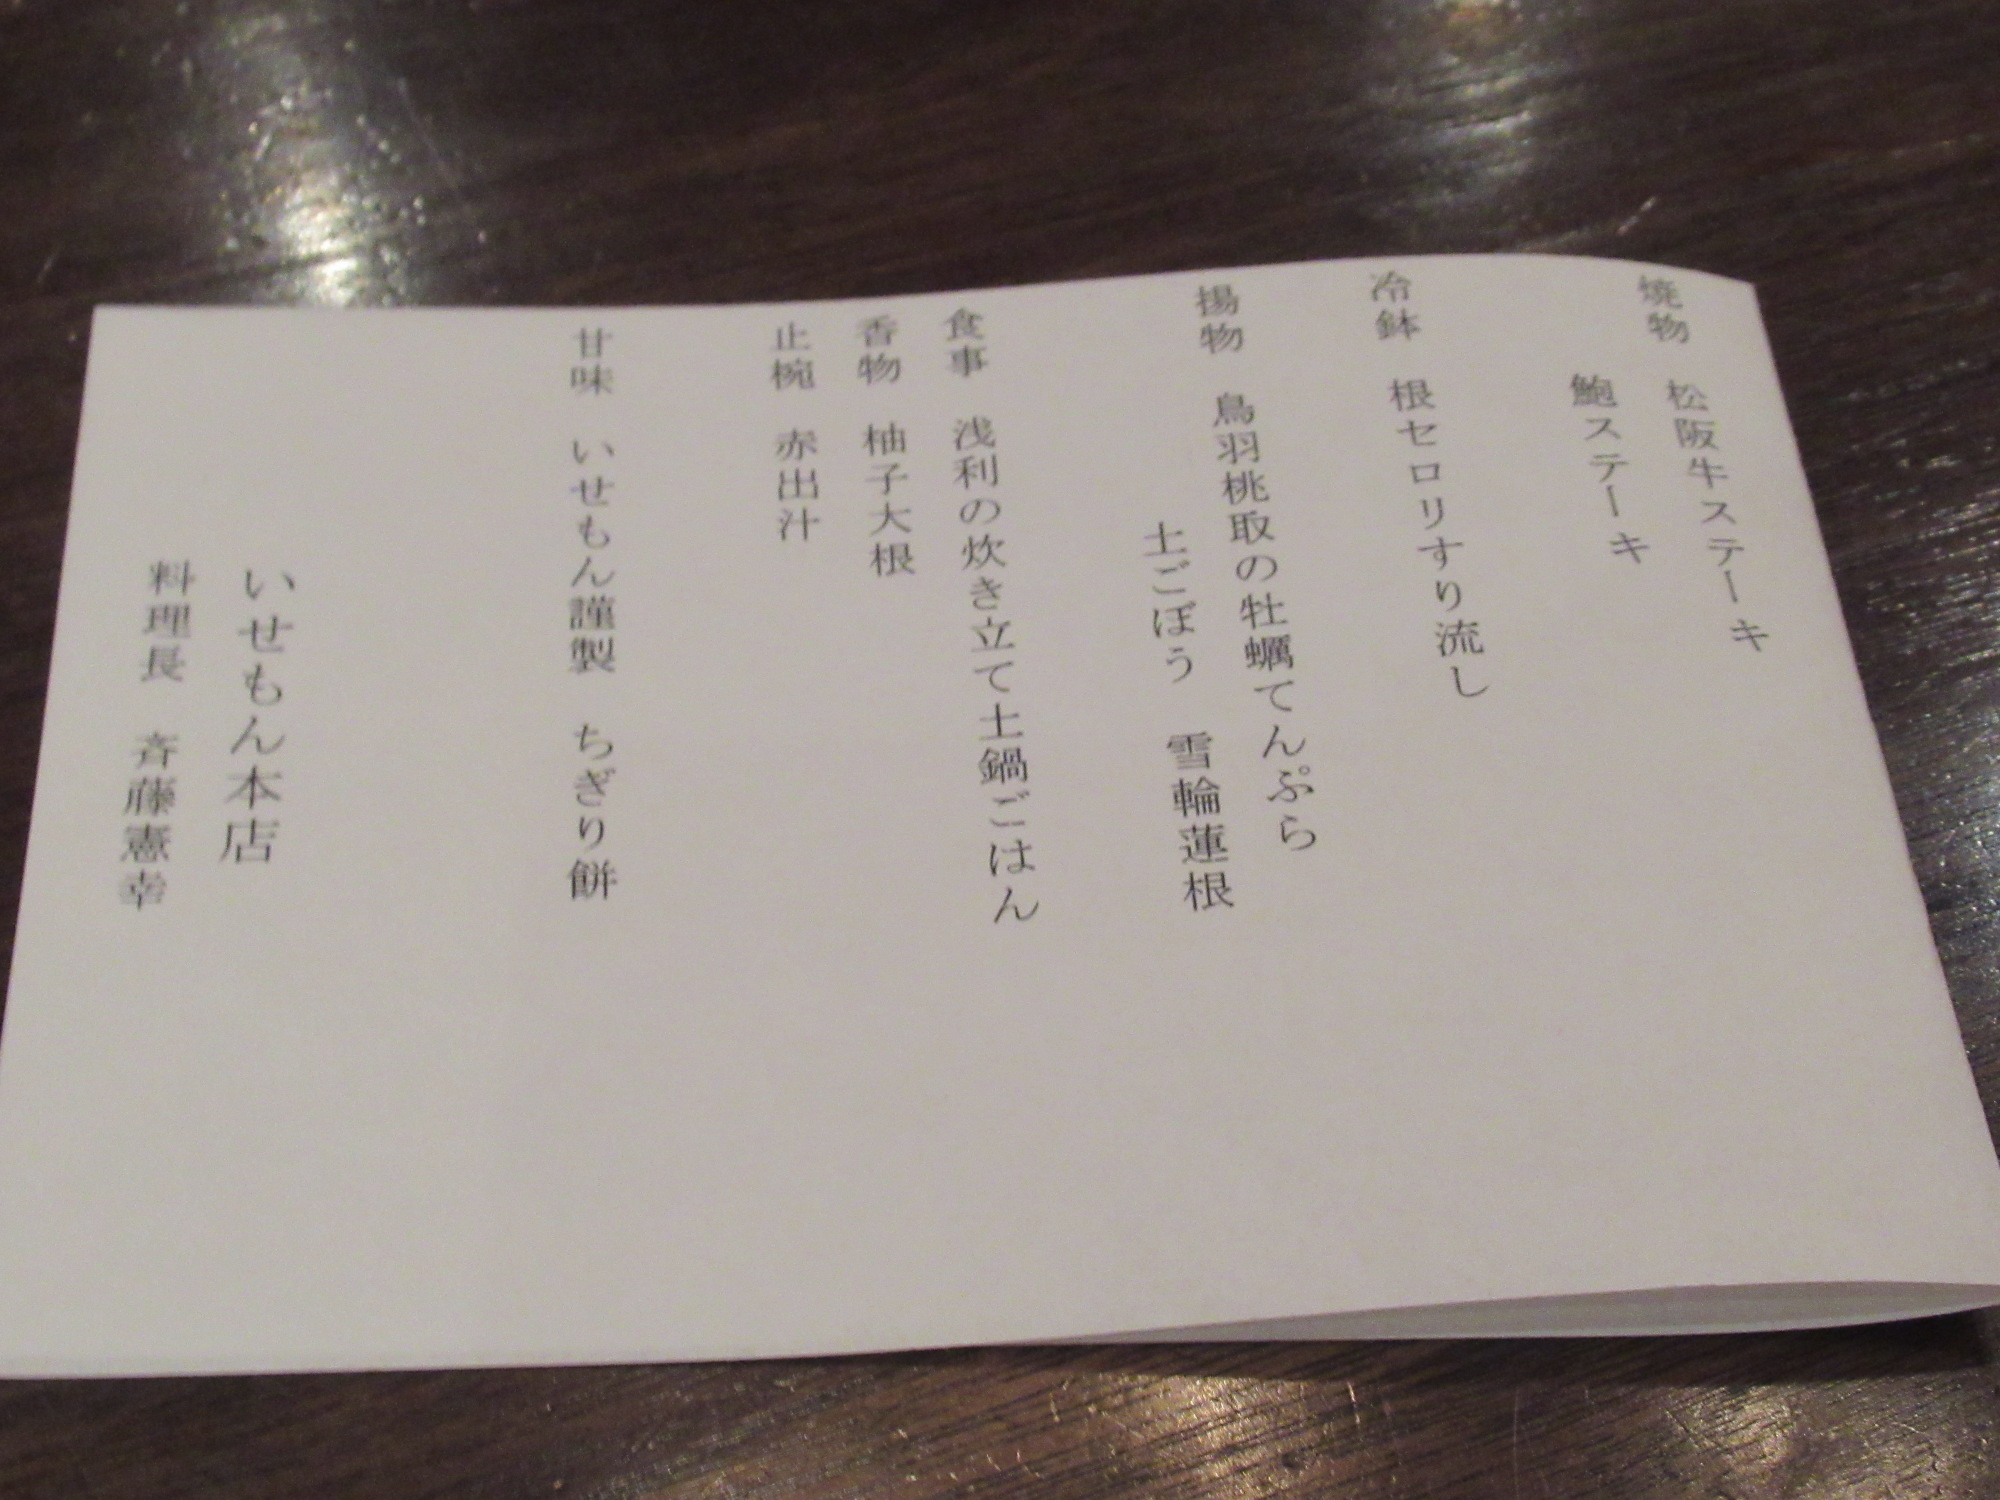 焼物　松阪牛ステーキ
鮑ステーキ
冷鉢　根セロリすり流し
揚物　鳥羽桃取の牡蠣てんぷら
土ごぼう　雪輪蓮根
食事　浅利の炊き立て土鍋ごはん
香物　柚子大根
止椀　赤出汁
甘味　いせもん謹製　ちぎり餅
いせもん本店
料理長　斉藤憲幸